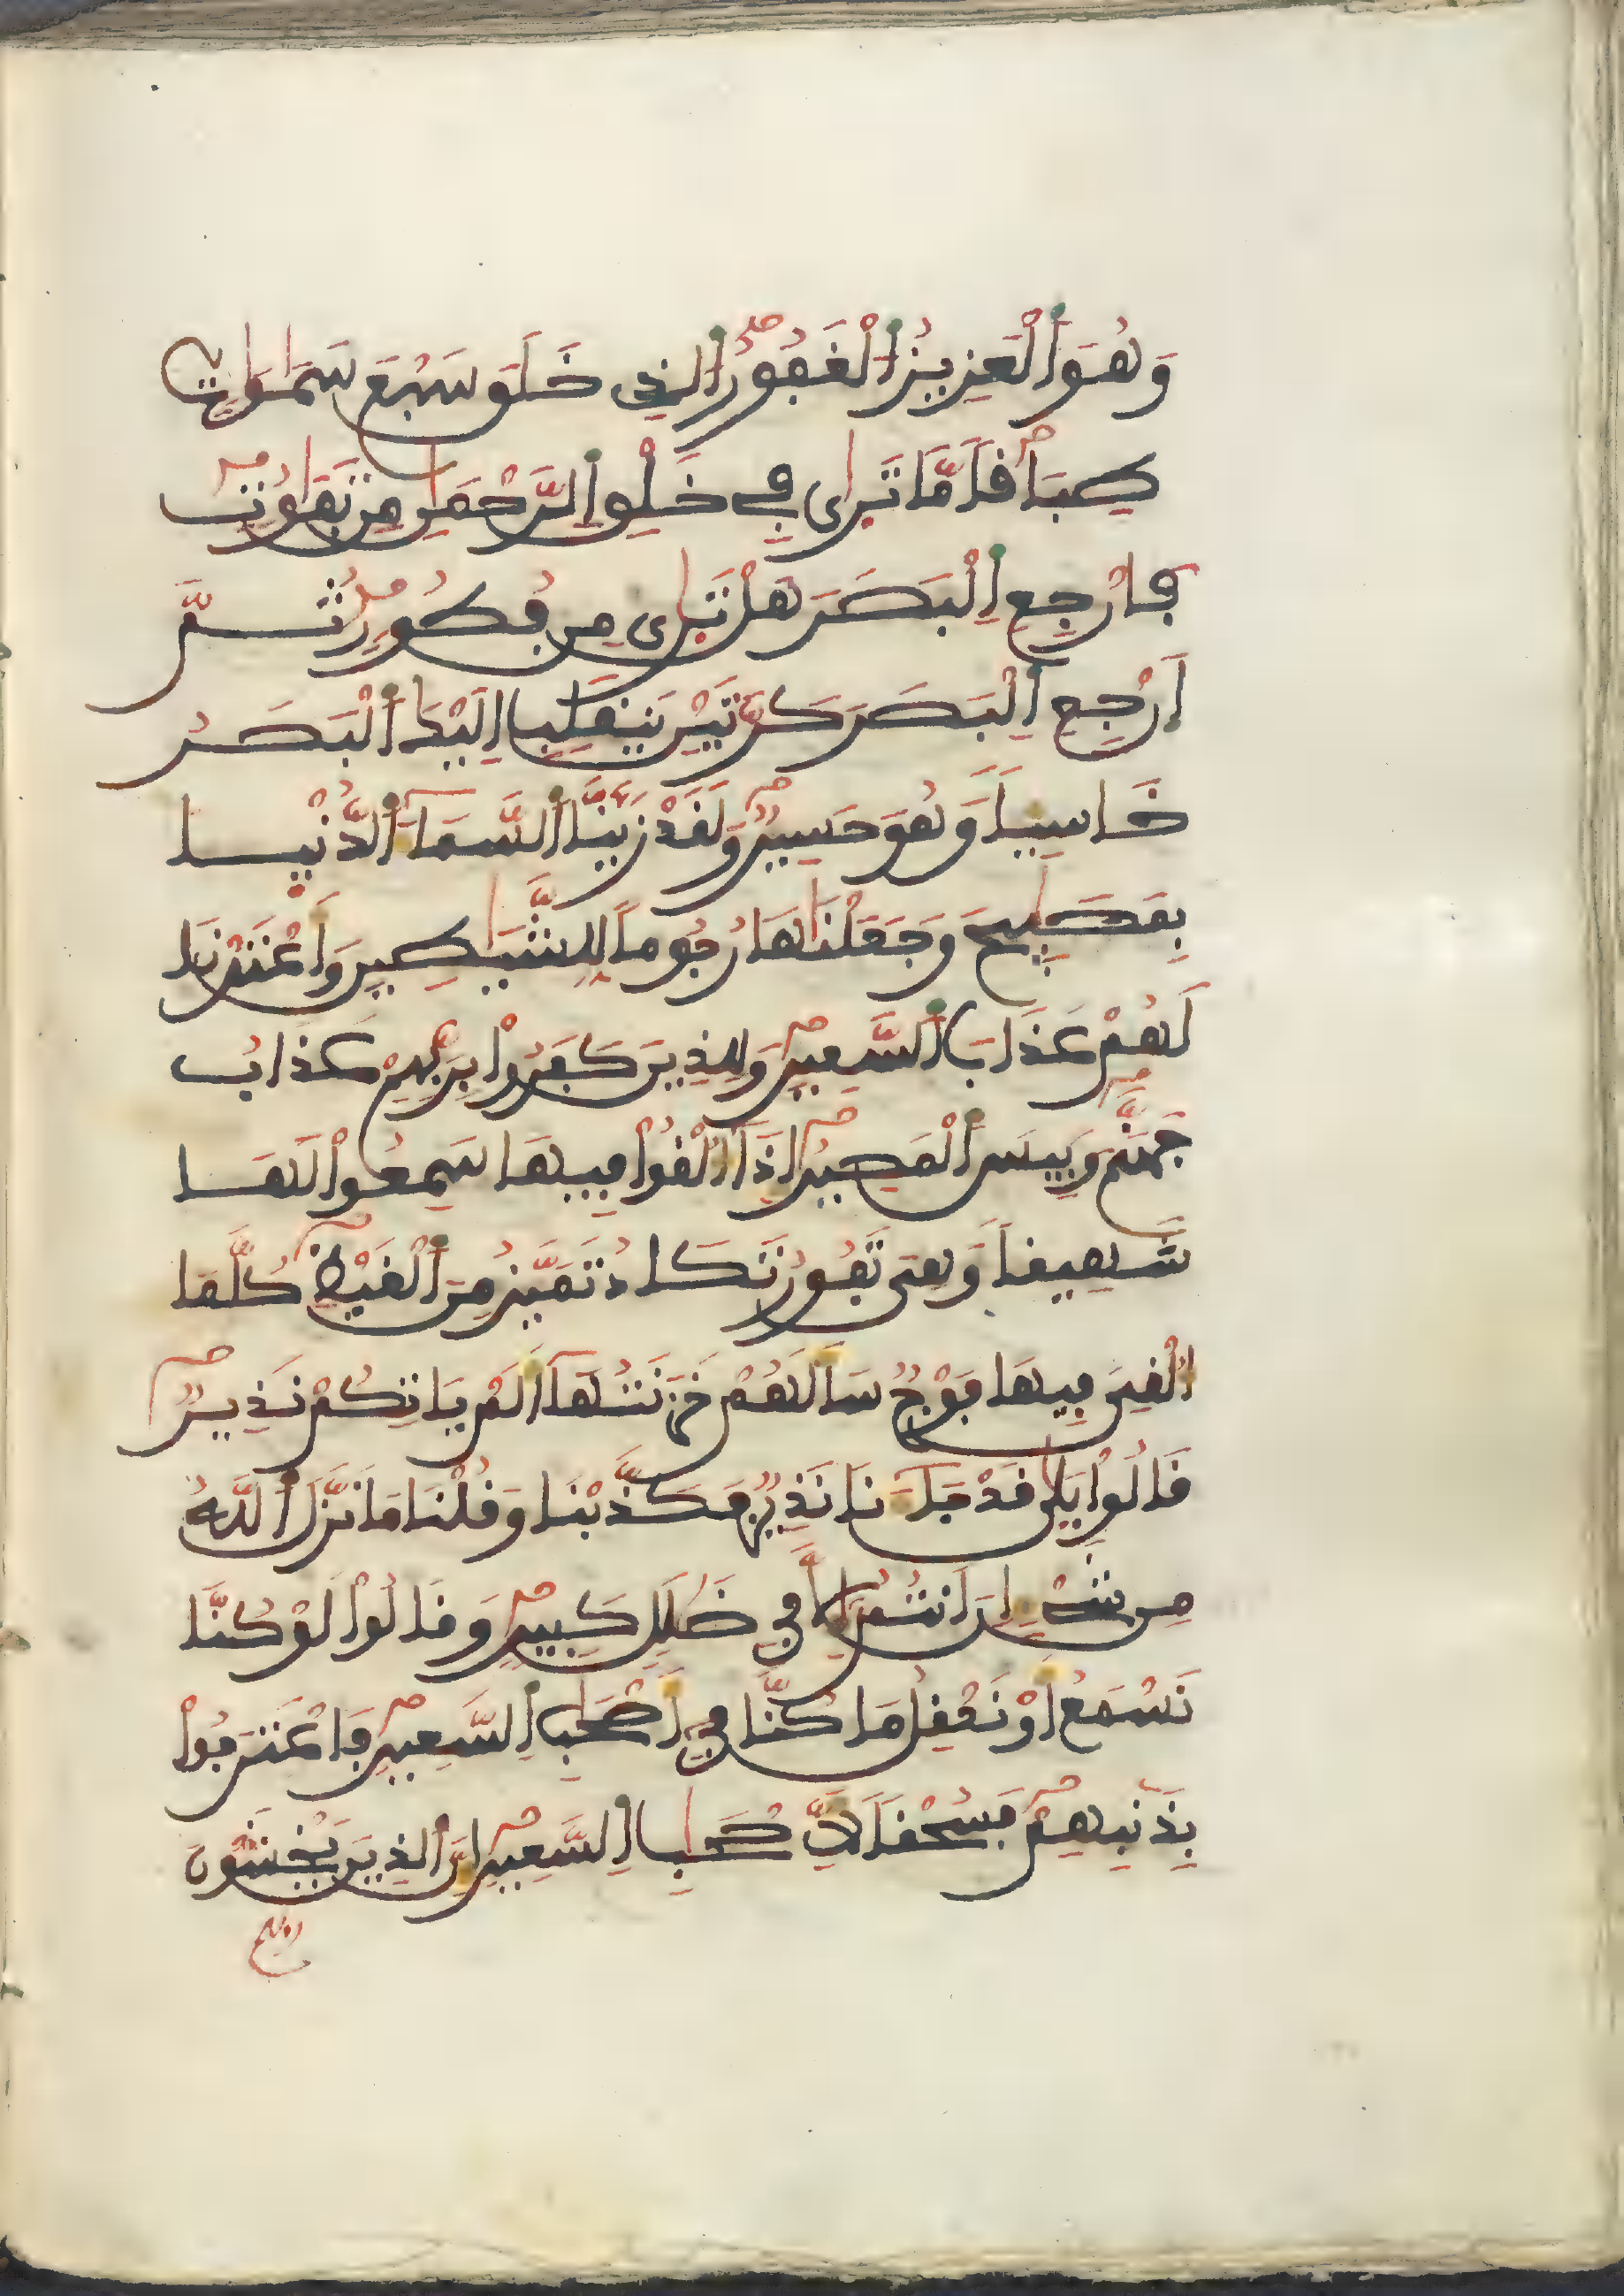 وَهُوَ اَ۬لْعَزِيزُ اُ۬لْغَفُورُ اُ۬لذِي خَلَقَ سَبْعَ سَمَٰوَٰتٖ
طِبَاقاٗ مَّا تَر۪ىٰ فِي خَلْقِ اِ۬لرَّحْمَٰنِ مِن تَفَٰوُتٖ
فَارْجِعِ اِ۬لْبَصَرَ هَلْ تَر۪ىٰ مِن فُطُورٖ ثُمَّ
اَ۪رْجِعِ اِ۬لْبَصَرَ كَرَّتَيْنِ يَنقَلِبِ اِلَيْكَ اَ۬لْبَصَرُ
خَاسِئاٗ وَهُوَ حَسِيرٞ وَلَقَدْ زَيَّنَّا اَ۬لسَّمَآءَ اَ۬لدُّنْيا
بِمَصَٰبِيحَ وَجَعَلْنَٰهَا رُجُوماٗ لِّلشَّيَٰطِينِ وَأَعْتَدْنَا
لَهُمْ عَذَابَ اَ۬لسَّعِيرِ وَلِلذِينَ كَفَرُواْ بِرَبِّهِمْ عَذَابُ
جَهَنَّمَ وَبِيسَ اَ۬لْمَصِيرُ إِذَآ أُلْقُواْ فِيهَا سَمِعُواْ لَهَا
شَهِيقاٗ وَهِيَ تَفُورُ تَكَادُ تَمَيَّزُ مِنَ اَ۬لْغَيْظِ كُلَّمَا
أُلْقِيَ فِيهَا فَوْجٞ سَأَلَهُمْ خَزَنَتُهَآ أَلَمْ يَاتِكُمْ نَذِيرٞ
قَالُواْ بَل۪ىٰ قَدْ جَآءَنَا نَذِيرٞ فَكَذَّبْنَا وَقُلْنَا مَا نَزَّلَ اَ۬للَّهُ
مِن شَےْءٍ اِنَ اَنتُمُۥٓ إِلَّا فِي ضَلَٰلٖ كَبِيرٖ وَقَالُواْ لَوْ كُنَّا
نَسْمَعُ أَوْ نَعْقِلُ مَا كُنَّا فِيٓ أَصْحَٰبِ اِ۬لسَّعِيرِ فَاعْتَرَفُواْ
بِذَنۢبِهِمْ فَسُحْقاٗ لِّأَصْحَٰبِ اِ۬لسَّعِيرِ إِنَّ اَ۬لذِينَ يَخْشَوْنَ